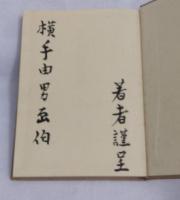 横手由男画伯
著者謹呈